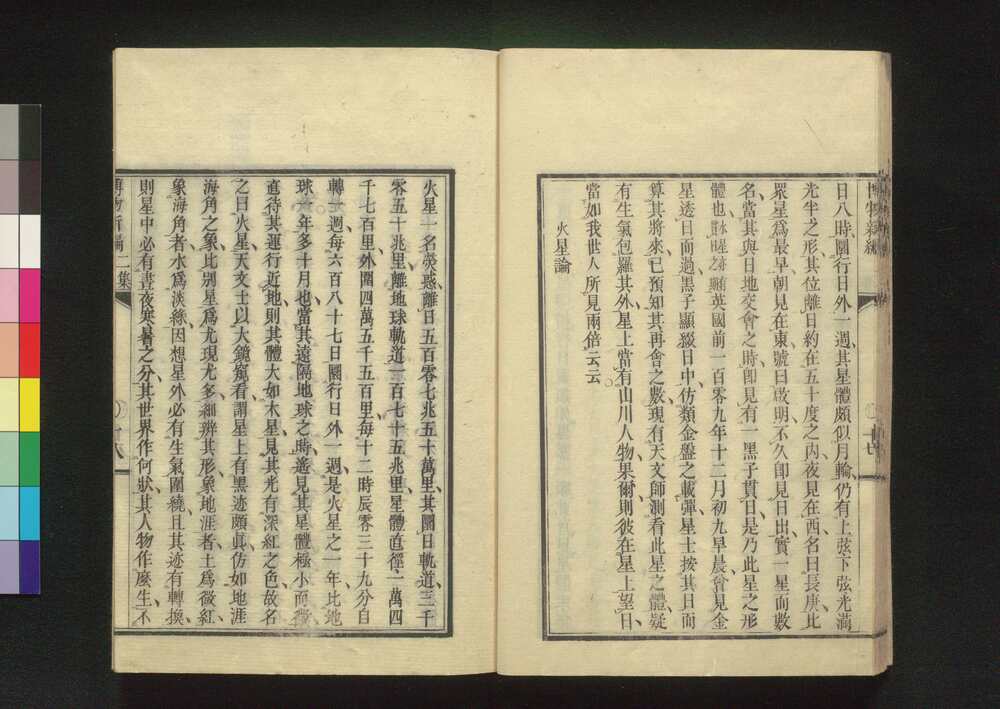 日八時圜行日外一週其星體頗似月輪仍有上弦下弦光滿
光半之形其位離日約在五十度之內夜見在西名曰長庚比
眾星為最早朝見在東號曰啟明不久卽見日出實一星而數
名當其與日地交會之時卽見有一黑子貫日是乃此星之形
體也英國前一百零九年十二月初九早晨會見金
星透日而過黑子顯綴日中仿類金盤之載彈星士按其日而
算其將來已預知其再會之數現有天文師測看此星之體疑
有生氣包羅其外星上當有山川人物果爾則彼在星上望日
當如我世人所見兩倍云云
火星論
火星一名熒惑離日五百零七兆五十萬里其圜日軌道三千
零五十兆里離地球軌道一百七十五兆里星體直徑一萬四
千七百里外圍四萬五千五百里每十二時辰零三十九分自
轉一週每六百八十七日圜行日外一週是火星之一年比地
球一年多十月也當其遠隔地球之時遙見其星體極小而微
直待其運行近地則其體大如木星見其光有深紅之色故名
之曰火星天文士以大鏡窺看謂星上有黑迹頗眞仿如地涯
海角之象比別星為尤現尤多細辨其形象地涯者土為微紅
象海角者水為淡綠因想星外必有生氣圍繞且其迹有轉換
則星中必有晝夜寒暑之分其世界作何狀其人物作麼生不
博物新編二集